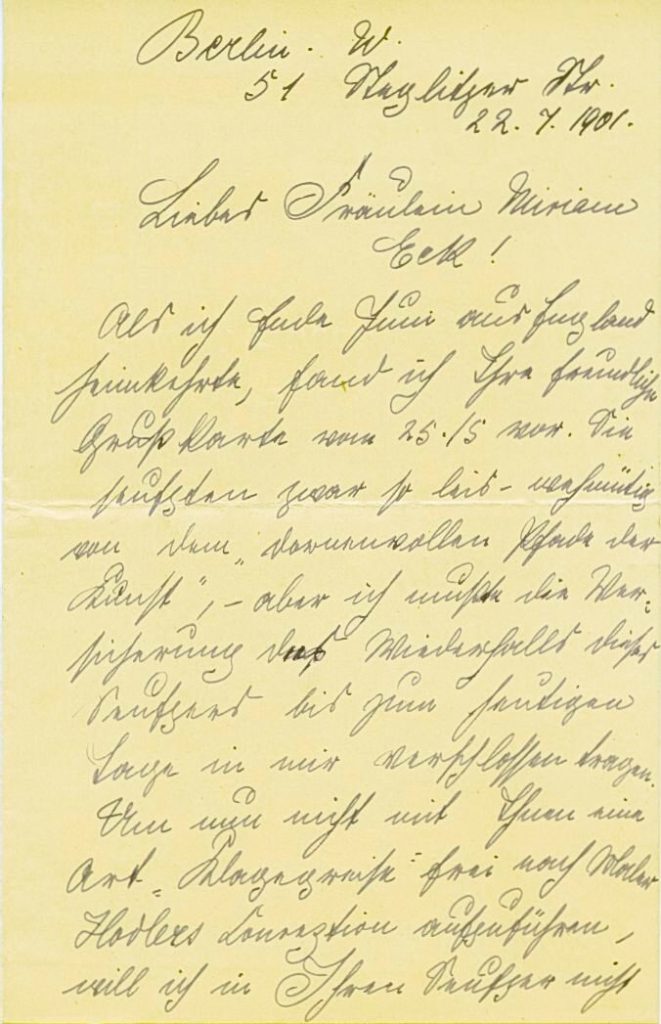 Berlin. W.
51 Steglitzer Str.
22. 7. 1901.
Liebes Fräulein Miriam
Eck!
Als ich Ende Juni aus England
heimkehrte, fand ich Ihre freundliche
Grußkarte vom 25./5 vor. Sie
seufzten zwar so leis-wehmütig
von dem „dornenvollen Pfade der
Kunst", – aber ich mußte die Ver-
sicherung des Wiederhalls dieses
Seufzers bis zum heutigen
Tage in mir verschlossen tragen.
Um nun nicht mit Ihnen eine
Art „Klagegreise" frei nach Maler
Hodlers Conception aufzuführen,
will ich in Ihren Seufzer nicht